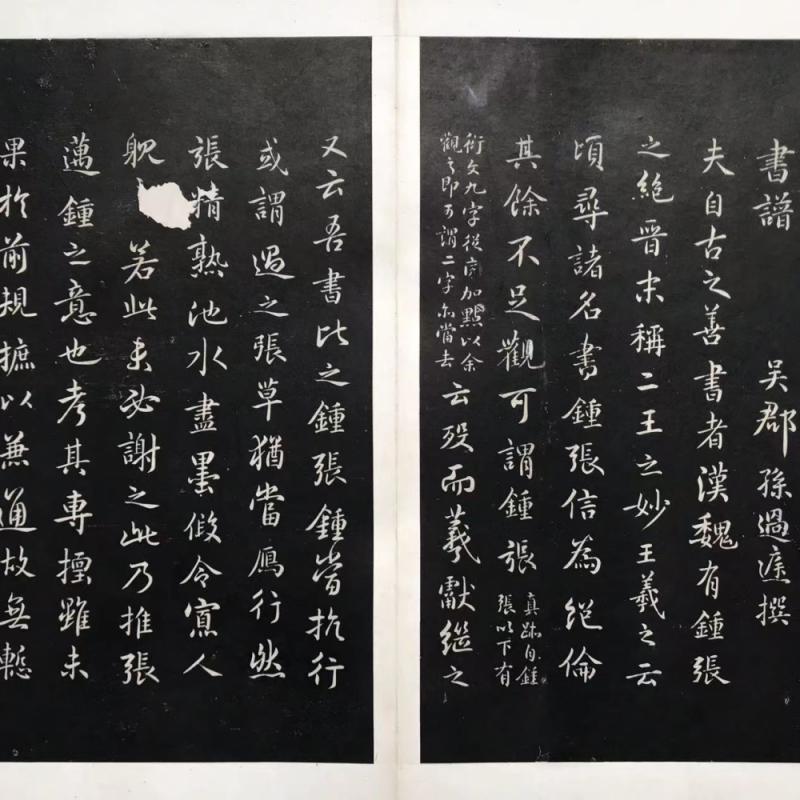 書譜 吳郡孫過庭撰
夫自古之善書者漢魏有鍾張
之絕晉末稱二王之妙王羲之云
頃尋諸名書鍾張信為絕倫
其餘不足觀可謂鍾張
真跡自鍾
張以下有
衍文九字從旁加點以余
觀之即可謂二字亦當去
云歿而羲獻繼之
又云吾書比之鍾張鍾當抗行
或謂過之張草猶當鴈行然
張精熟池水盡墨假令寡人
耽 若此未必謝之此乃推張
邁鍾之意也考其專擅雖未
果於前規摭以兼通故無慙